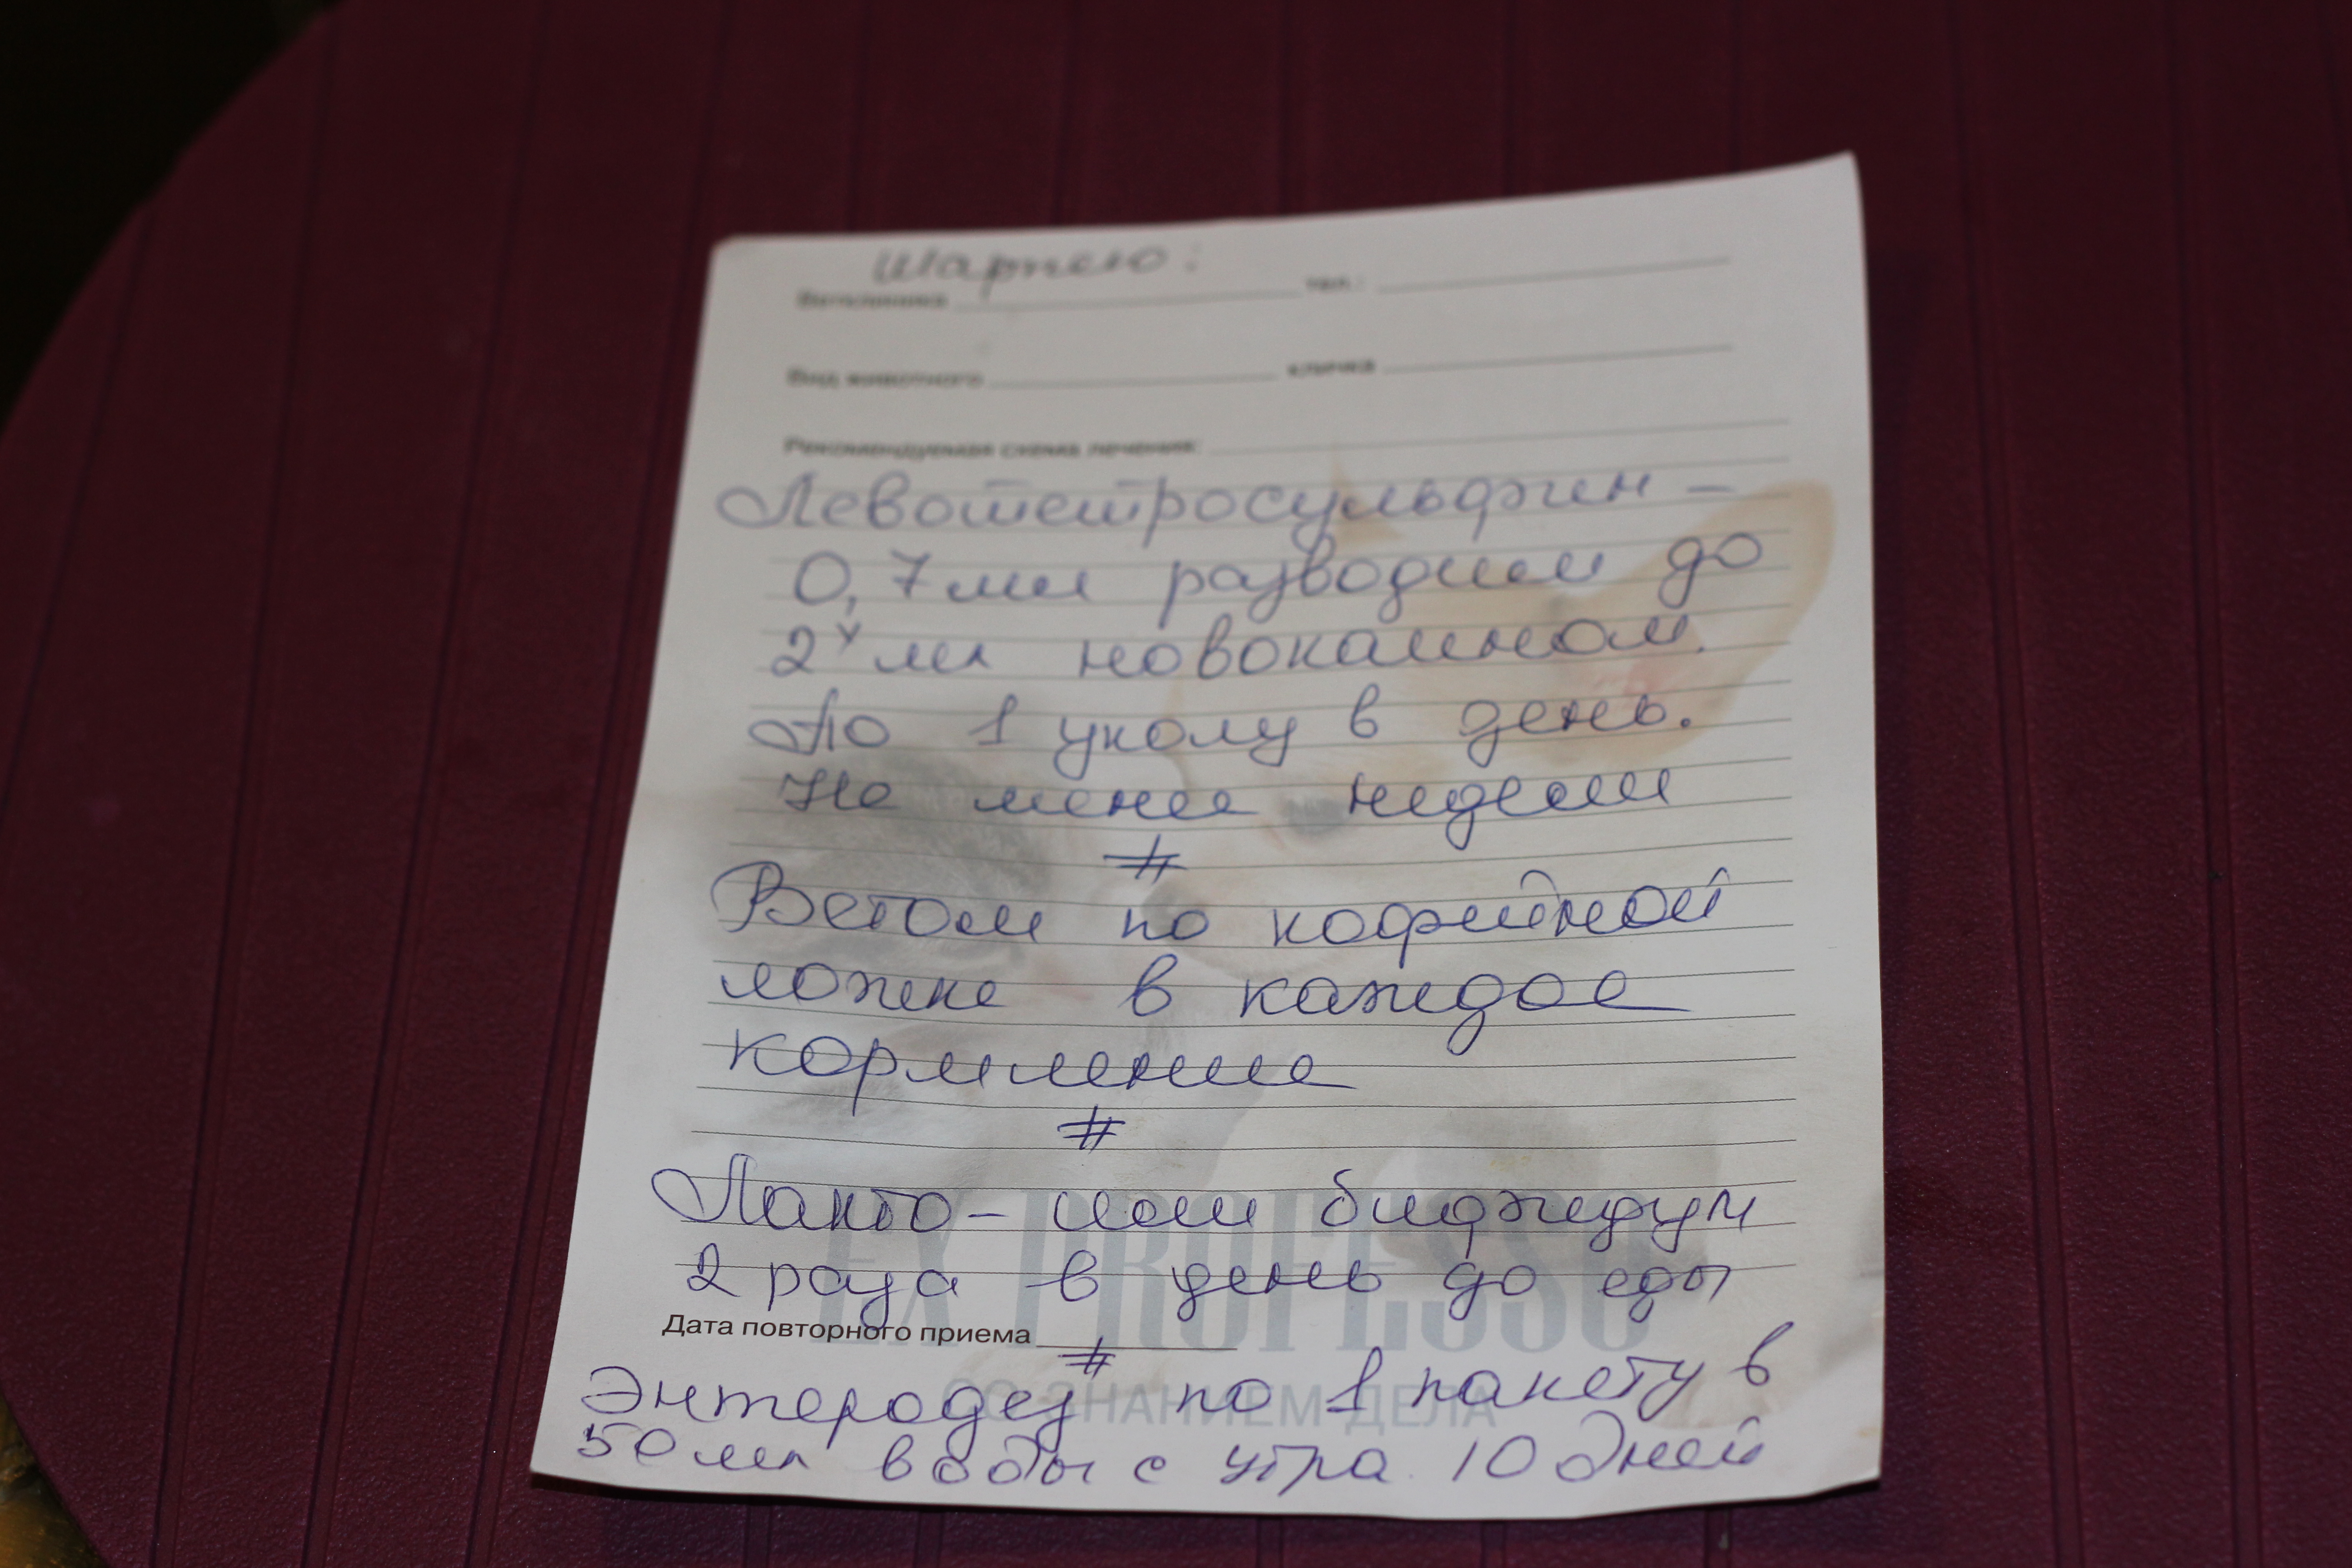 Шарпею:
Ветклиника тел.:
Вид животного кличка
Рекомендуемая схема лечения:
Левотетросульфин –
0,7мл разводим до
2х мл новокаином.
По 1 уколу в день.
Не менее недели
#
Ветом по кофейной
ложке в каждое
кормление
#
Лакто – или бифидум
2 раза в день до еды
EX PROFESSO
Дата повторного приема
#
СО ЗНАНИЕМ ДЕЛА
Энтеродез по 1 пакету в
50 мл воды с утра 10 дней